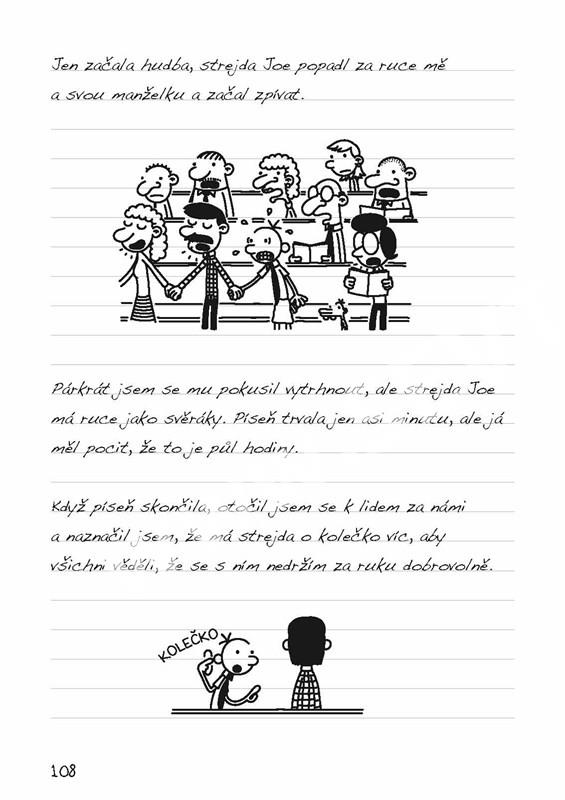 Jen začala hudba, strejda Joe popadl za ruce mě
a svou manželku a začal zpívat.
Párkrát jsem se mu pokusil vytrhnout, ale strejda Joe
má ruce jako svěráky. Píseň trvala jen asi minutu, ale já
měl pocit, že to je půl hodiny.
Když píseň skončila, otočil jsem se k lidem za námi
a naznačil jsem, že má strejda o kolečko víc, aby
všichni věděli, že se s ním nedržím za ruku dobrovolně.
KOLEČKO
108